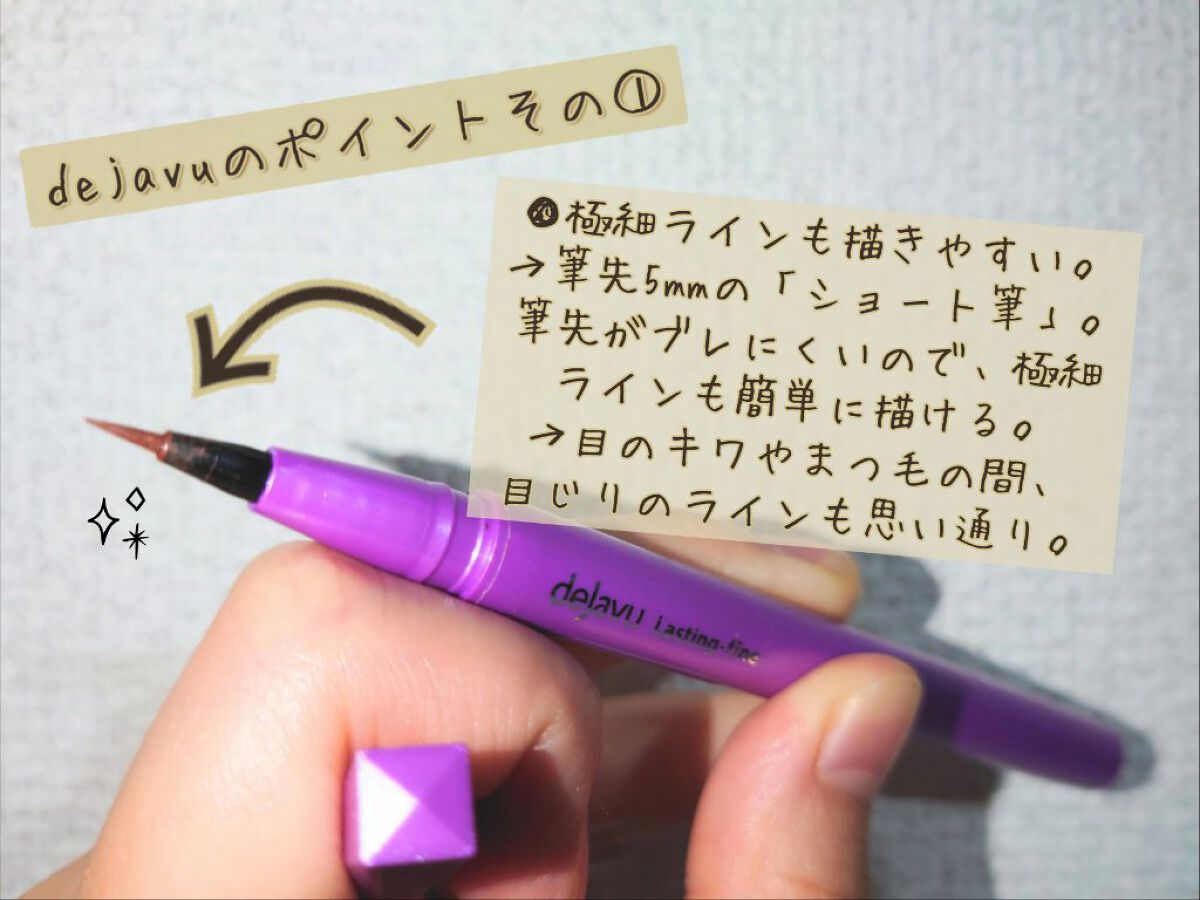 dejavuのポイントその①
●極細ラインも描きやすい。
→筆先5mmの「ショート筆」。
筆先がブレにくいので、極細
ラインも簡単に描ける。
→目のキワやまつ毛の間、
目じりのラインも思い通り。
dejavu Lasting-fine